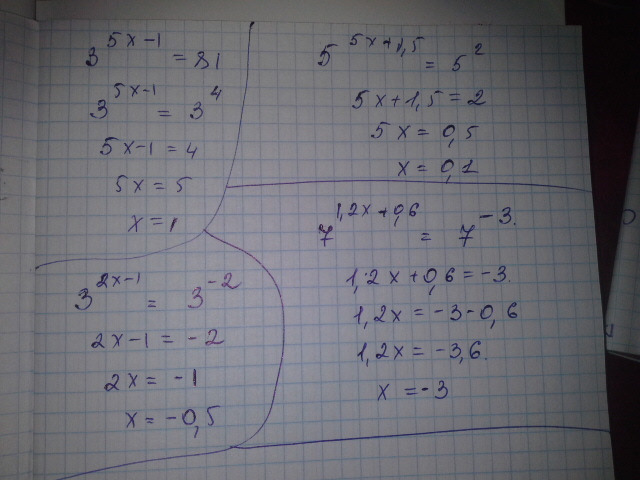 3^{5x-1} = 81
3^{5x-1} = 3^4
5x-1 = 4
5x = 5
x = 1
3^{2x-1} = 3^{-2}
2x-1 = -2
2x = -1
x = -0,5
5^{5x+1,5} = 5^2
5x+1,5 = 2
5x = 0,5
x = 0,1
7^{1,2x+0,6} = 7^{-3}.
1,2x+0,6 = -3.
1,2x = -3-0,6
1,2x = -3,6.
x = -3